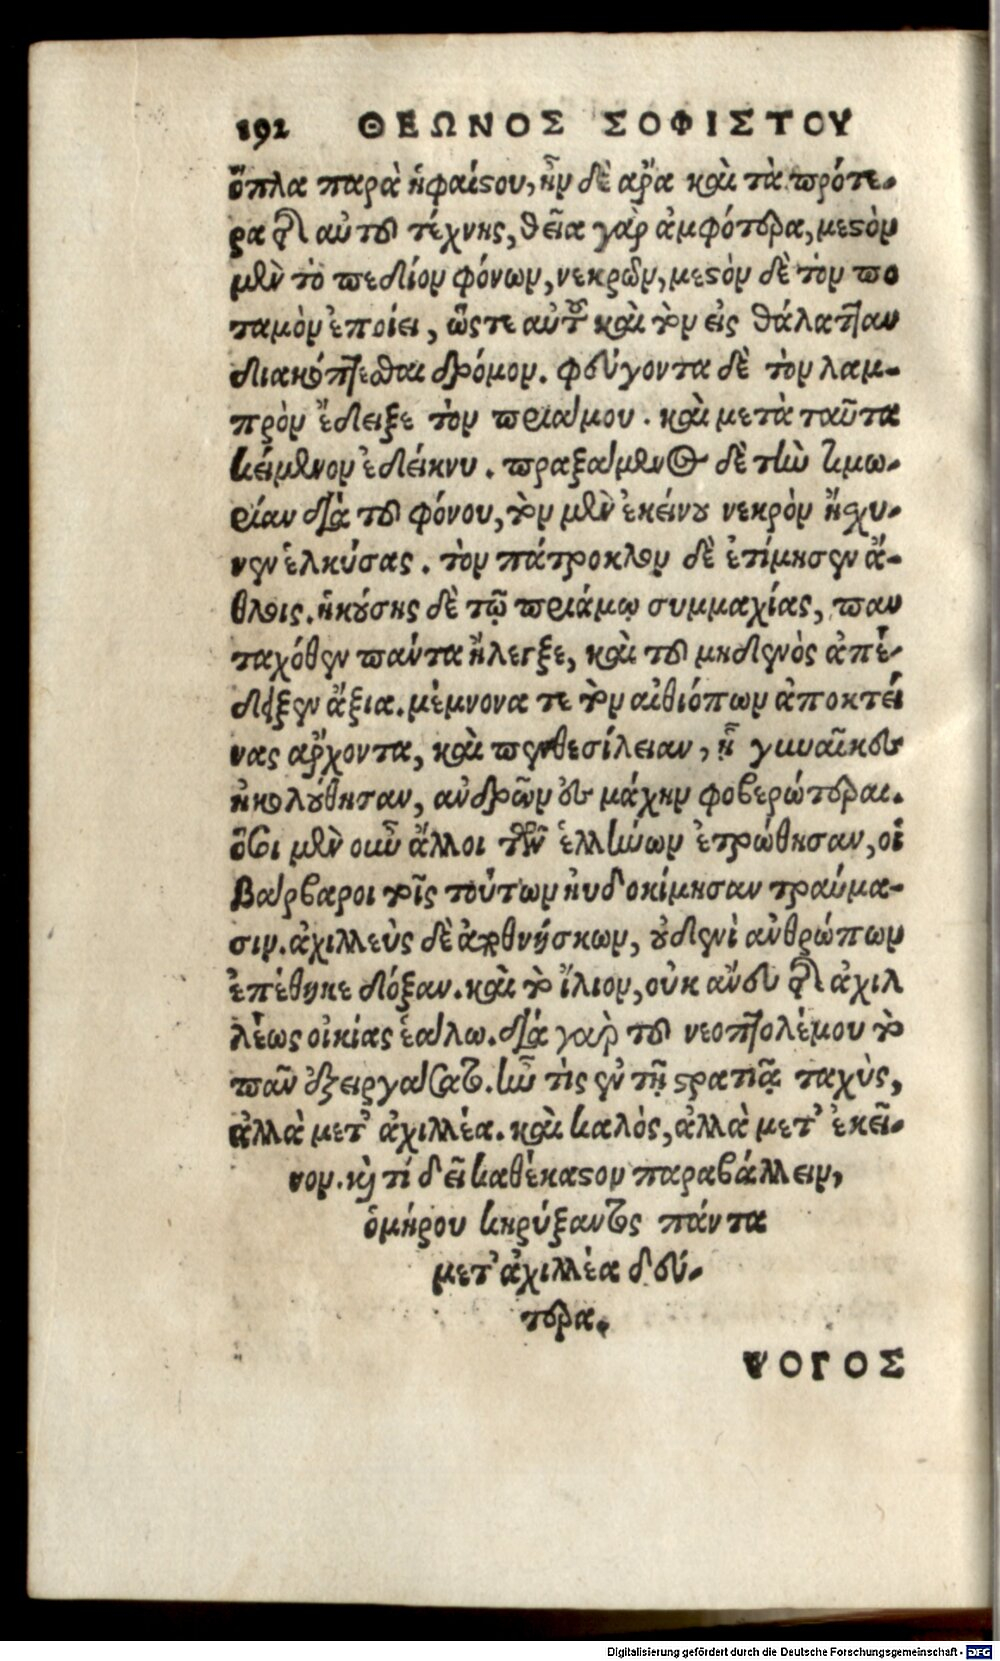 192 ΘΕΩΝΟΣ ΣΟΦΙΣΤΟΥ
ὅπλα παρὰ ἡφαίστου, ἦν δὲ ἄρα καὶ τὰ πρότε-
ρα τῆς αὐτοῦ τέχνης, θεῖα γὰρ ἀμφότερα, μεστὸν
μὲν τὸ πεδίον φόνων, νεκρῶν, μεστὸν δὲ τὸν πο
ταμὸν ἐποίει, ὥστε αὐτοῦ καὶ τὸν εἰς θάλατταν
διακόπτεσθαι δρόμον. φεύγοντα δὲ τὸν λαμ-
πρὸν ἔδειξε τὸν πριάμου. καὶ μετὰ ταῦτα
κείμενον ἐδείκνυ. πραξάμενος δὲ τὴν τιμω-
ρίαν διὰ τοῦ φόνου, τὸν μὲν ἐκείνου νεκρὸν ᾔσχυ-
νεν ἑλκύσας. τὸν πάτροκλον δὲ ἐτίμησεν ἄ-
θλοις. ἡκούσης δὲ τῷ πριάμῳ συμμαχίας, παν
ταχόθεν πάντα ἤλεγξε, καὶ τοῦ μηδενὸς ἀπέ-
δειξεν ἄξια. μέμνονα τε τὸν αἰθιόπων ἀποκτεί
νας ἄρχοντα, καὶ πενθεσίλειαν, ᾗ γυναῖκες
ἠκολούθησαν, ἀνδρῶν ἐς μάχην φοβερώτεραι.
ὅσοι μὲν οὖν ἄλλοι τῶν ἑλλήνων ἐτρώθησαν, οἱ
βάρβαροι τοῖς τούτων ηὐδοκίμησαν τραύμα-
σιν. ἀχιλλεὺς δὲ ἀποθνήσκων, οὐδενὶ ἀνθρώπων
ἐπέθηκε δόξαν. καὶ τὸ ἴλιον, οὐκ ἄνευ τῆς ἀχιλ
λέως οἰκίας ἑάλω. διὰ γὰρ τοῦ νεοπτολέμου τὸ
πᾶν ἐξειργάσατο. ἦν τὶς ἐν τῇ στρατιᾷ ταχὺς,
ἀλλὰ μετ’ ἀχιλλέα. καὶ καλός, ἀλλὰ μετ’ ἐκεῖ-
νον. καὶ τί δεῖ καθέκαστον παραβάλλειν,
ὁμήρου κηρύξαντος πάντα
μετ’ ἀχιλλέα δεύ-
τερα.
ΨΟΓΟΣ
Digitalisierung gefördert durch die Deutsche Forschungsgemeinschaft - DFG